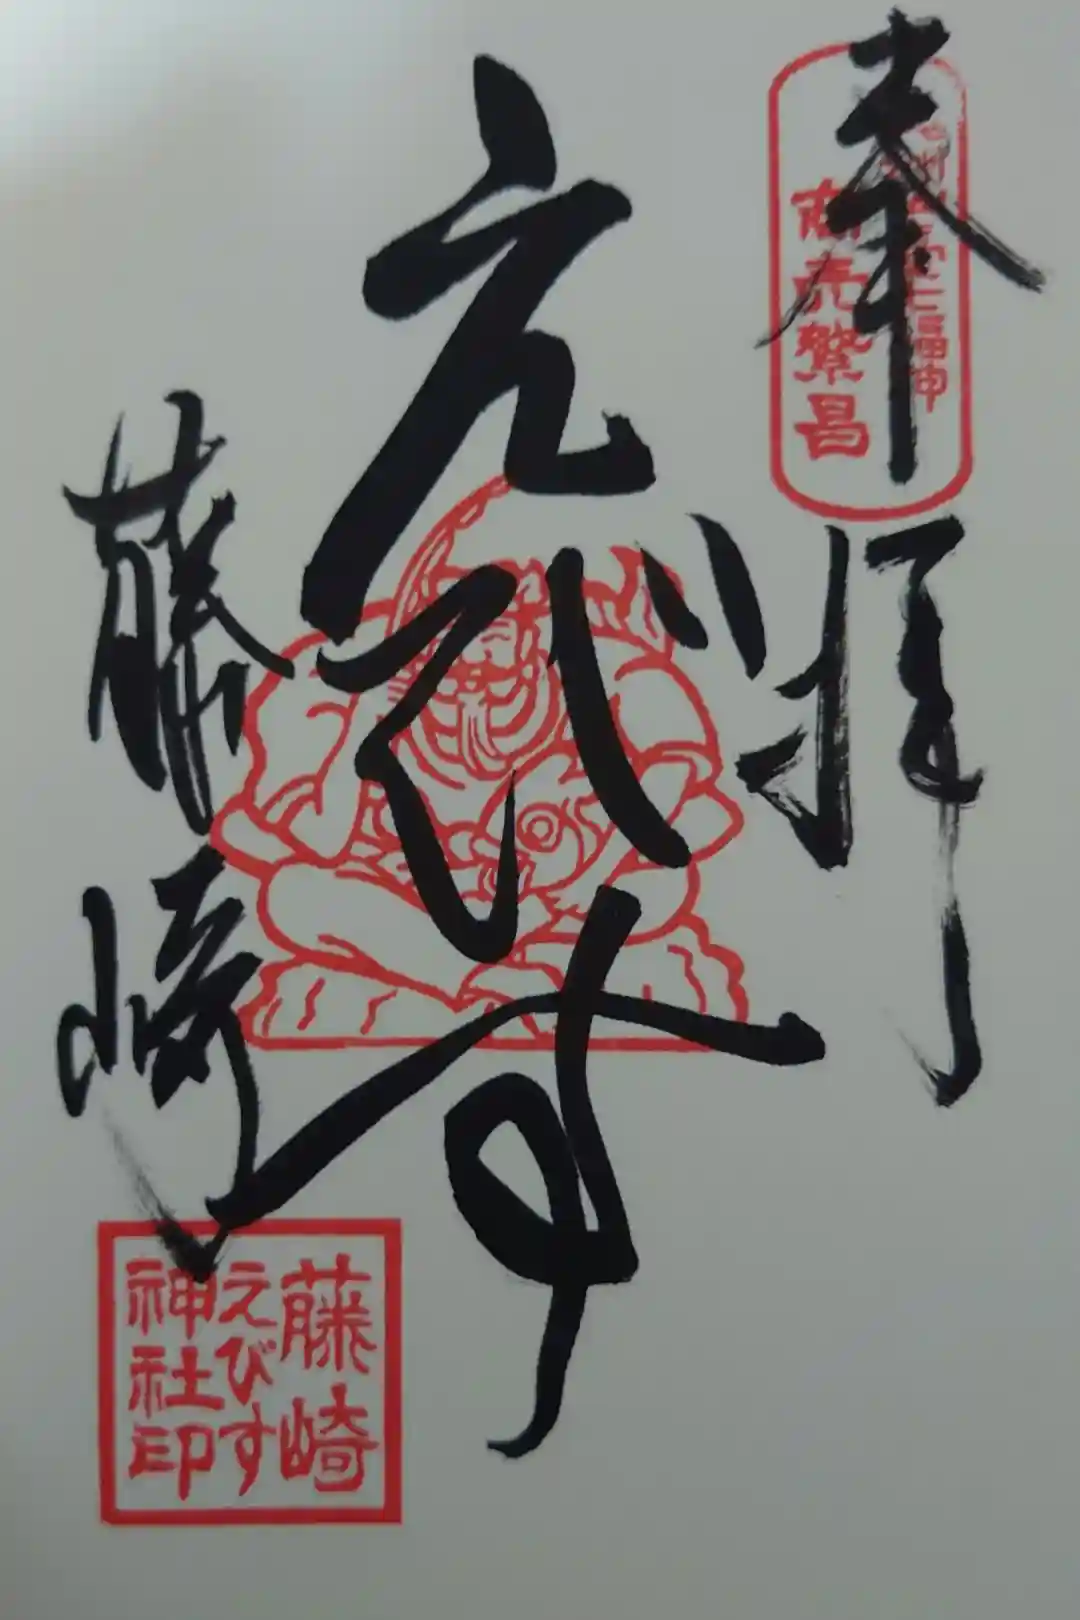 奉拝
商売繁昌
えびす
藤崎
藤崎
えびす
神社印